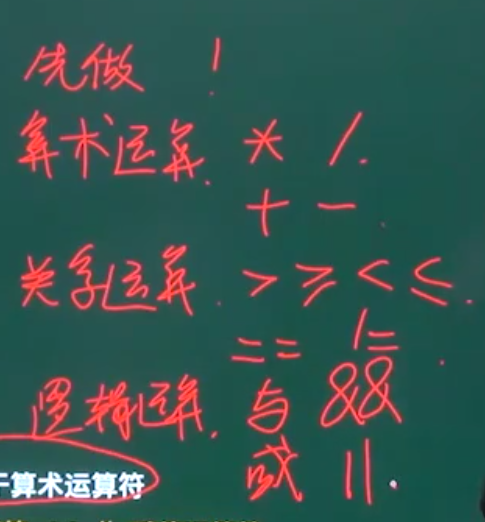 先做 !
算术运算 * /.
+ -
关系运算. > ≥ < ≤.
== !=
逻辑运算. 与 &&
或 ||.
于算术运算符